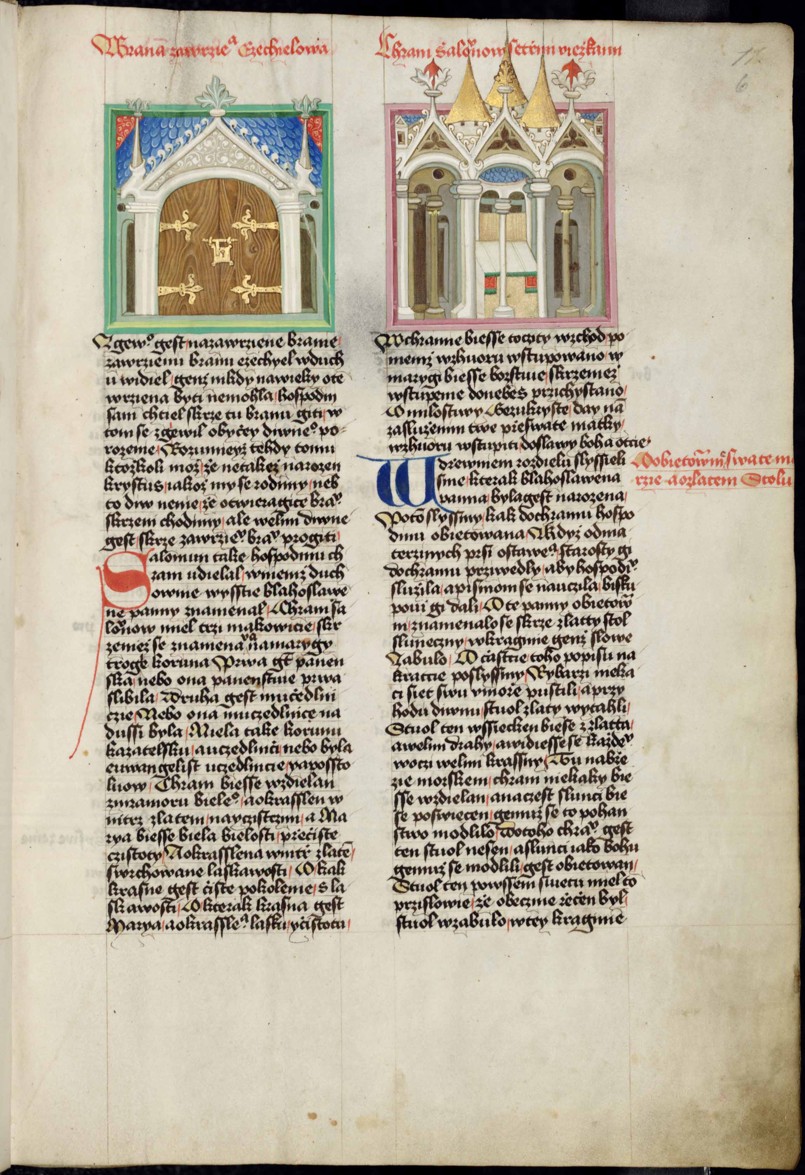 Brana zawrziea Ezechielowa
zawrzienu branu ezechyel wduch
u widiel genz nikdy nawieky ote
wrziena byti nemohla hospodin
sam chtiel skrze tu branu giti w
tom se zgewil obyčey diwneo po
rozenie Rozumiey tehdy tomu
ktozkoli moz ze netakez narozen
krystus iakoz my se rodimy neb
to diw nenie ze otwieragice
skrzeni chodimy ale welmi diwne
gest skrze progiti
Salomun take hospodinu ch
ram udielal wniemz duch
ownie wyssie blahoslawe
ne panny znamenal Chram
miel trzi makowicie
zemez se
troge koruna Prwa panen
ska nebo ona panenstwie prwa
slibila Druha gest mučedlni
czie Nebo ona muczedlnice na
dussi byla Miela take korunu
kazatelsku auczedlnici nebo byla
ewangelist uczedlnicie yapossto
luow Chram biesse wzdielan
zmramoru bieleo aokrasslen w
nitrz zlatem nayczistczim a Ma
rya biesse biela bielosti přečiste
czistoty Aokrasslena wnitř zlatē
swrchowane laskawosti O kak
krasne gest čiste pokolenie s la
skawosti Okterak krasna gest
Marya aokrasslea lasku yčistotu
Chram Salōnow setrmi wiezkami
Wchramie biesse toczty wzchod po
niemz wzhuoru wstupowano w
marygi biesse bozstwie skrzemez
wstupenie donebes przichystano
O milostiwy Gezukryste day nā
zasluzenim twe přeswate matky
wzhuoru wstupiti doslawy boha otcie
W drzewniem rozdielu slyssieli
sme kterak blahoslawena
panna bylagest narozena
Potō slyssmy kak dochramu hospo
dinu obietowana Kdyz odma
terzinych prsi ostawea starosty gi
dochramu przywedly aby
sluzila apismom se nauczila
gi dali O te panny obietow
znamenalo se skrze zlatty stol
sluneczny wkraginie genz slowe
Zabulo O častcie toho popisu na
kratcie poslyssmy Rybarzi nieka
ci siet swu wmoře pustili aprzy
hodu diwnu stuol zlaty wytahli
Stuol ten wssiecken biesse z zlatta
awelmi drahy awidiesse se
woczi welmi krassny Tu nabře
zie morskem chram niekaky bie
sse wzdielan anaczest slunci bie
se poswiecen gemuz se to pohan
stwo modlilo Dotoho gest
ten stuol nesen aslunci iako bohu
gemuz se modlili gest obietowan
Stuol ten powssem swietu miel to
przislowie ze obecznie řečen byl
stuol wzabulo wtey kraginie
Oobietowanī swate
rzie aozlatem Stolu